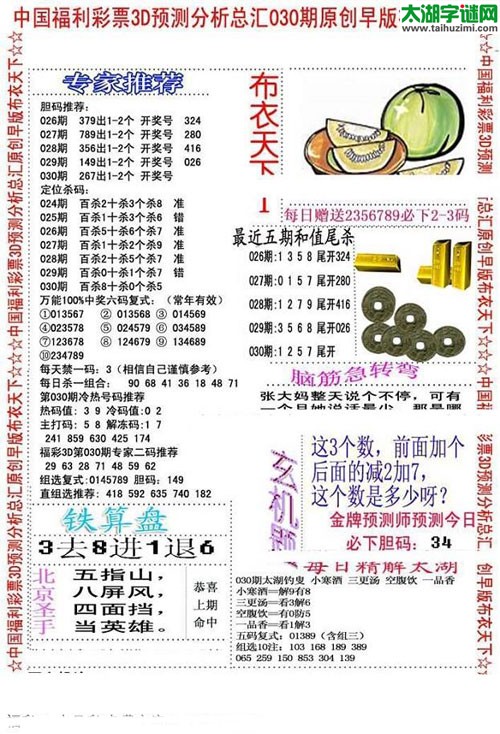 太湖字谜网
www.taihuzimi.com
中国福利彩票3D预测分析总汇030期原创早版
专家推荐
胆码推荐:
026期 379出1-2个 开奖号 324
027期 789出1-2个 开奖号 280
028期 356出1-2个 开奖号 416
029期 149出1-2个 开奖号 026
030期 267出1-2个 开奖号
定位杀码:
024期 百杀2十杀3个杀8 准
025期 百杀1十杀3个杀6 错
026期 百杀2十杀1个杀7 准
027期 百杀1十杀2个杀9 准
028期 百杀2十杀4个杀2 准
029期 百杀0十杀1个杀7 错
030期 百杀8十杀0个杀5
万能100%中奖六码复式: (常年有效)
①013567 ② 013568 ③ 014569
④023578 ⑤ 024579 ⑥ 034589
⑦123678 ⑧ 124679 ⑨ 134689
⑩234789
每天禁一码: 3 (相信自己谨慎参考)
每日杀一组合: 90 68 41 36 18 48 71
第030期冷热号码推荐
热码值: 3 9 冷码值:0 2
主打码: 5 8 解冻码: 1 7
241 859 630 425 174
福彩3D第030期专家二码推荐
29 63 28 71 48 59 62
组选复式:0145789 胆码: 149
直组选推荐: 418 592 635 740 182
布衣天下
每日赠送2356789必下2-3码
最近五期和值尾杀
026期:1 3 5 8 尾开324
027期:0 1 5 7 尾开280
028期:1 2 7 9 尾开416
029期:3 5 6 8 尾开026
030期:1 2 5 7 尾开
脑筋急转弯
张大妈整天说个不停,可有
一个月她说话最少,那是哪
这3个数,前面加个
后面的减2加7,
这个数是多少呀?
金牌预测师预测今日
必下胆码: 34
铁算盘
3去8进1退6
北京圣手
五指山,
八屏风,
四面挡,
当英雄。
恭喜
上期
命中
每日精解太湖
030期太湖钓叟 小寒酒 三更汤 空腹饮 一品香
小寒酒==解9有8
三更汤==看3解6
空腹饮==有0防5
一品香==看1解3
五码复式: 01389 (含组三)
组选10注: 103 168 189 389
065 259 150 853 304 139
☆中国福利彩票3D预测分析总汇原创早版布衣天下☆